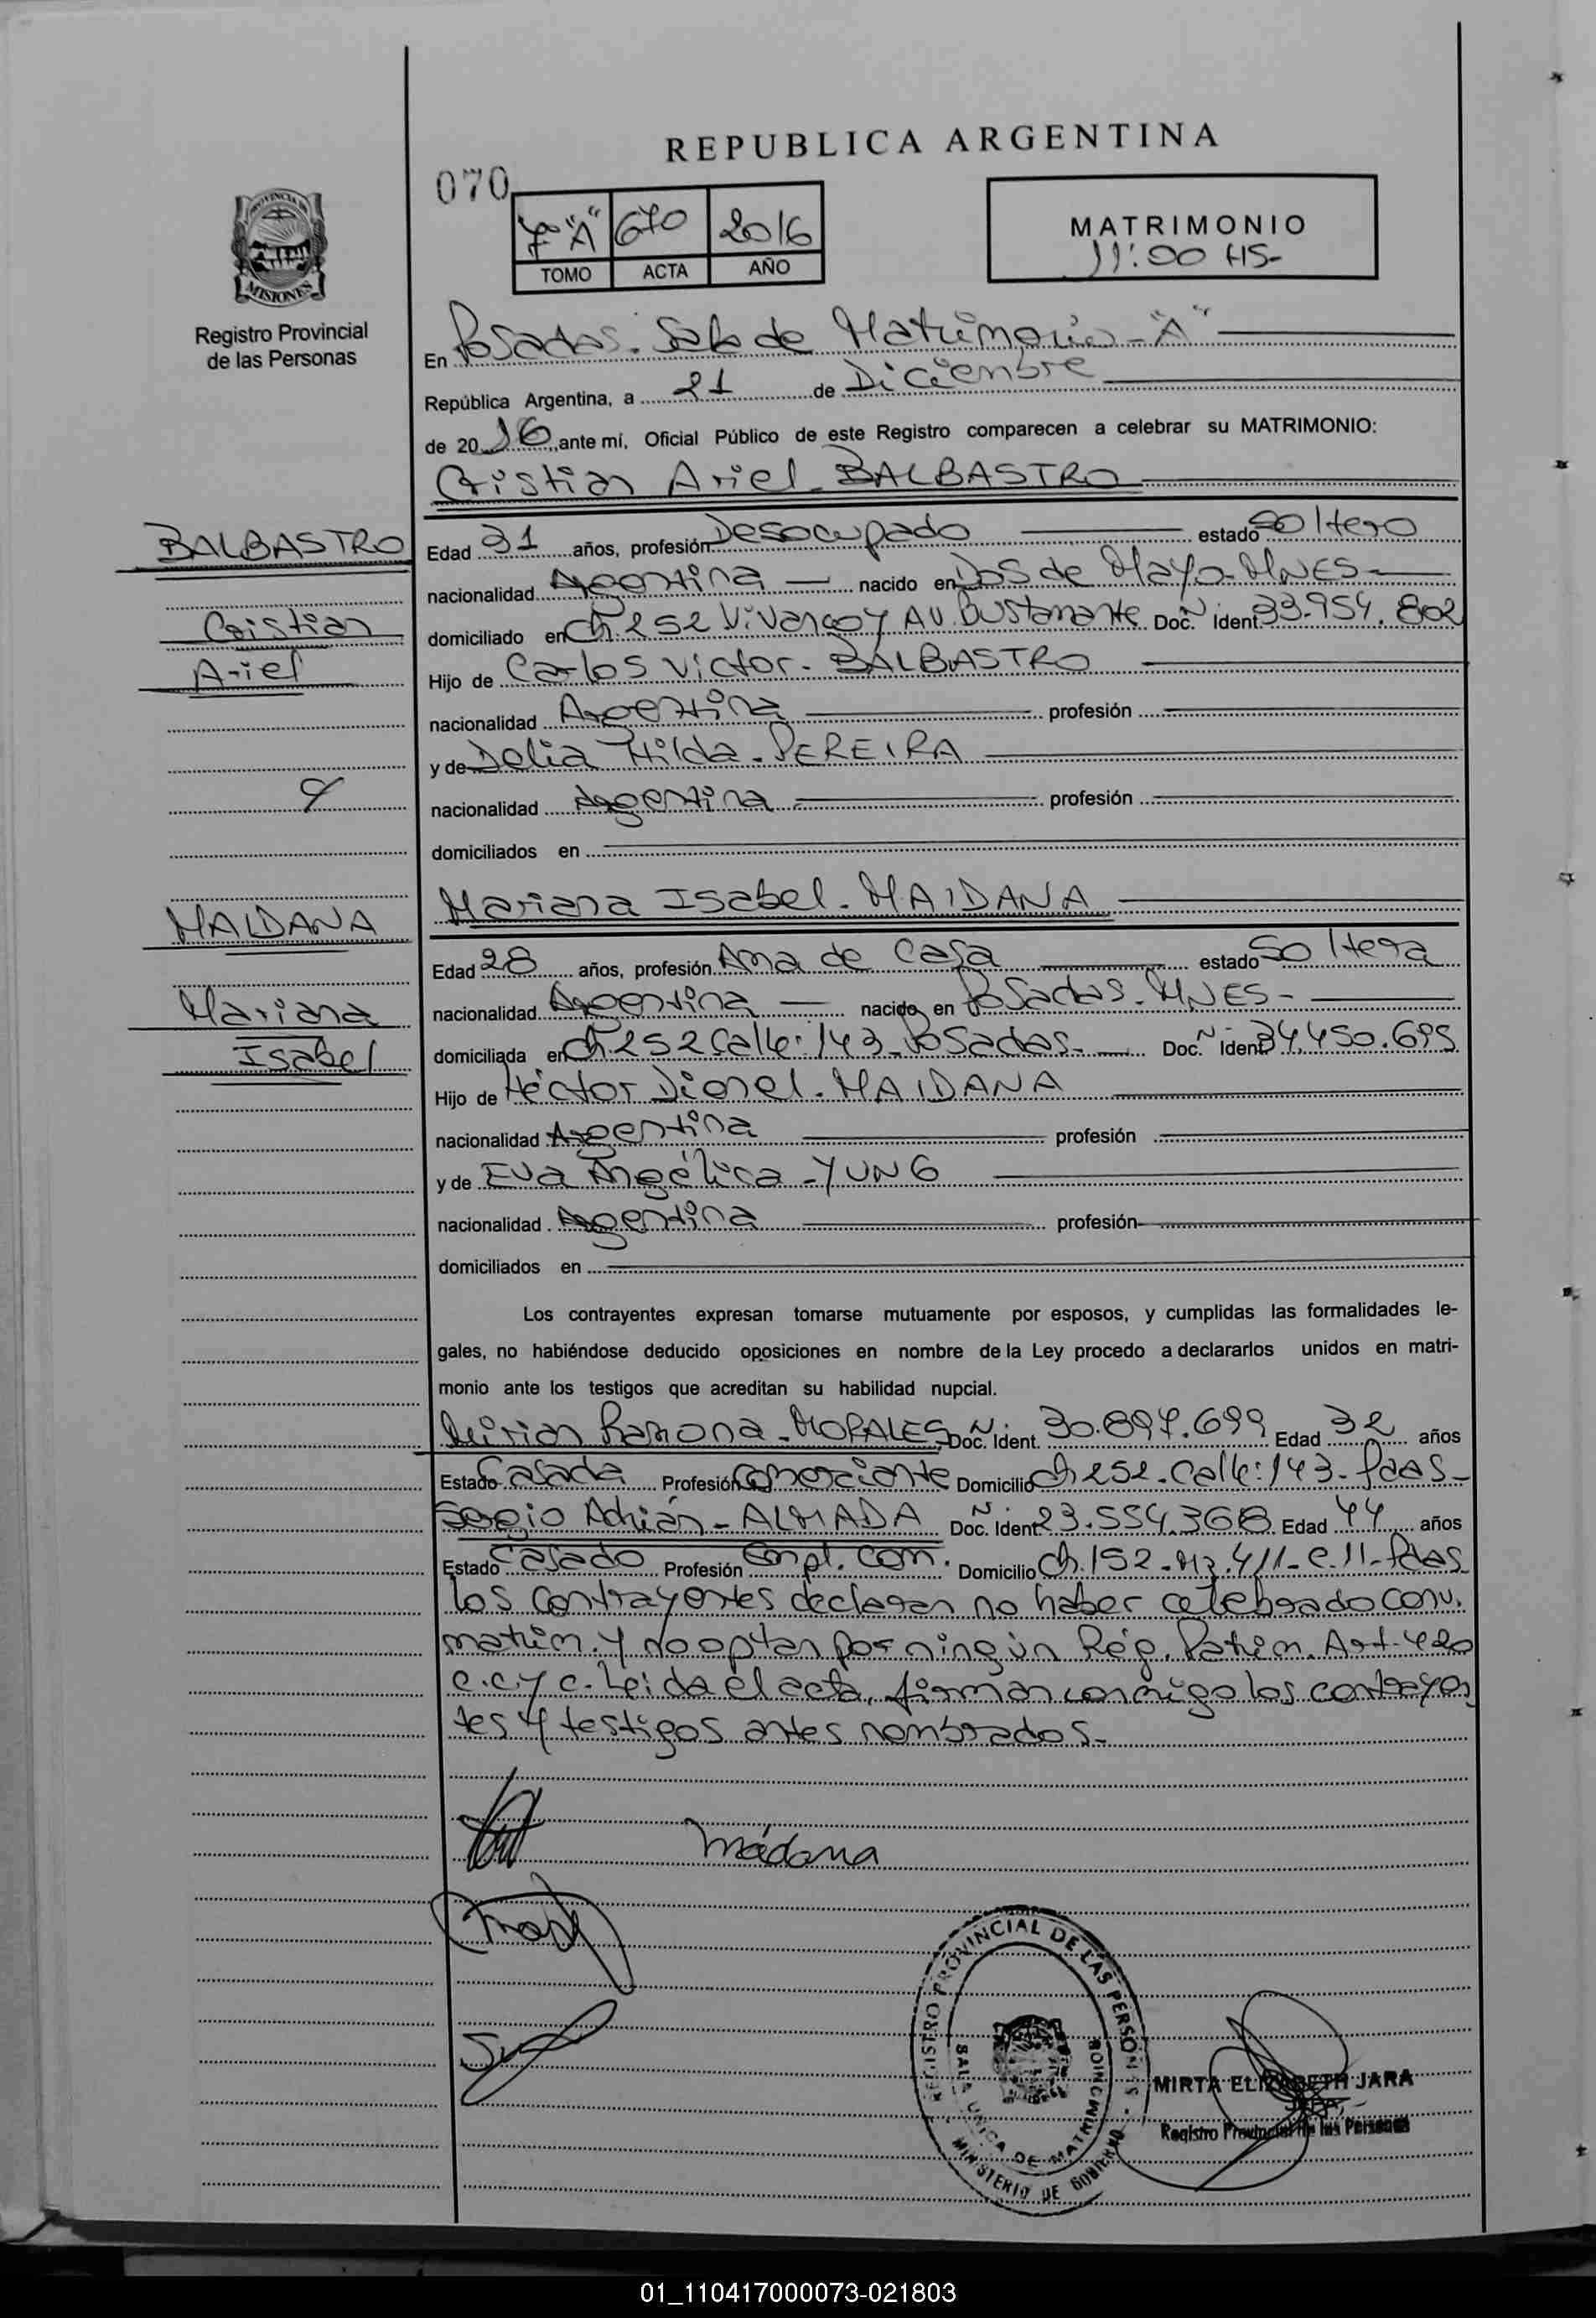 REPUBLICA ARGENTINA
070
7º "A" 670 2016
TOMO ACTA AÑO
MATRIMONIO
11:00 HS-
PROVINCIA DE
MISIONES
Registro Provincial
de las Personas
En Posadas. Sala de Matrimonio - "A"
República Argentina, a 21 de Diciembre
de 2016 ante mí, Oficial Público de este Registro comparecen a celebrar su MATRIMONIO:
Cristian Ariel - BALBASTRO
BALBASTRO
Cristian
Ariel
Edad 31 años, profesión Desocupado estado Soltero
nacionalidad Argentina nacido en Dos de Mayo - MNES -
domiciliado en Ch 252 Vivanco y Av. Bustamante Doc. Ident 33.954.802
Hijo de Carlos Victor - BALBASTRO
nacionalidad Argentina profesión
y de Delia Hilda - PEREIRA
y
nacionalidad Argentina profesión
domiciliados en
Mariana Isabel - MAIDANA
MAIDANA
Mariana
Isabel
Edad 28 años, profesión Ama de Casa estado Soltera
nacionalidad Argentina nacido en Posadas - MNES -
domiciliada en Ch 252 Calle: 143 - Posadas - Doc. Ident 34.450.695
Hijo de Héctor Dionel - MAIDANA
nacionalidad Argentina profesión
y de Eva Angélica - YUNG
nacionalidad Argentina profesión
domiciliados en
Los contrayentes expresan tomarse mutuamente por esposos, y cumplidas las formalidades le-
gales, no habiéndose deducido oposiciones en nombre de la Ley procedo a declararlos unidos en matri-
monio ante los testigos que acreditan su habilidad nupcial.
Mirian Ramona - MORALES Doc. Ident. 30.897.699 Edad 32 años
Estado Casada Profesión Comerciante Domicilio Ch 252 - Calle: 143 - Pdas -
Sergio Adrián - ALMADA Doc. Ident 23.554.368 Edad 44 años
Estado Casado Profesión Empl. Com. Domicilio Ch. 152 - Mz. 411 - C. 11 - Pdas
Los contrayentes declaran no haber celebrado conv.
matrim. y no optan por ningún Rég. Patrim. Art. 420
C.C y C. Leída el acta, firman conmigo los contrayen
tes y testigos antes nombrados -
Maidana
REGISTRO PROVINCIAL DE LAS PERSONAS
SALA UNICA DE MATRIMONIOS
MINISTERIO DE GOBIERNO
MIRTA ELIZABETH JARA
JEFA
Registro Provincial de las Personas
01_110417000073-021803